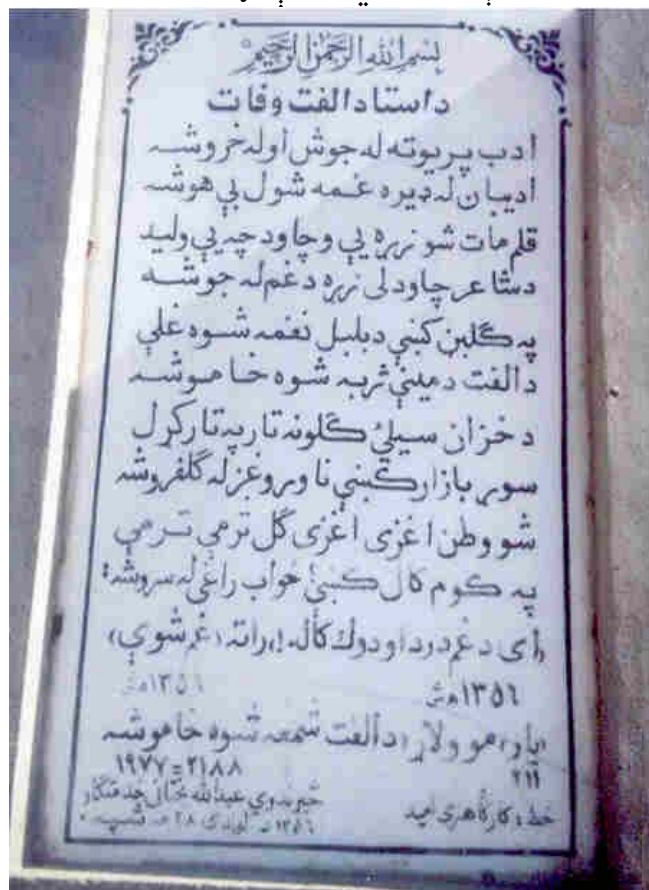 بسم الله الرحمن الرحيم
داستاد الفت وفات
ادب پریوته له جوش او له خروشه
ادیبان له ډیره غمه شول بې هوشه
قلم مات شو زړه یې وچاود چه یې ولید
دشاعر چاودلی زړه دغم له جوشه
په ګلبن کښې دبلبل نغمه شوه غلې
دالفت دمینې ژبه شوه خاموشه
دخزان سیلۍ ګلونه تار په تار کړل
سور بازار کښې نا وروغزله ګلفروشه
شو وطن اغزی اغزی ګل ترمې ترمې
په کوم کال کښې؟ ځواب راغی له سروشه:
(ای دغم درد او دوک کاله!) راته (غم شوې)
۱۳۵۶ هش ۱۳۵۶ هش
(یار) هو ولاړ (دالفت شمعه شوه خاموشه
۲۱۱ ۲۱۸۸ = ۱۹۷۷
خط: کارګاه هنری امید
عبدالله بختانی خدمتګار
۱۳۵۶ د لیندۍ ۲۸ مه شپه